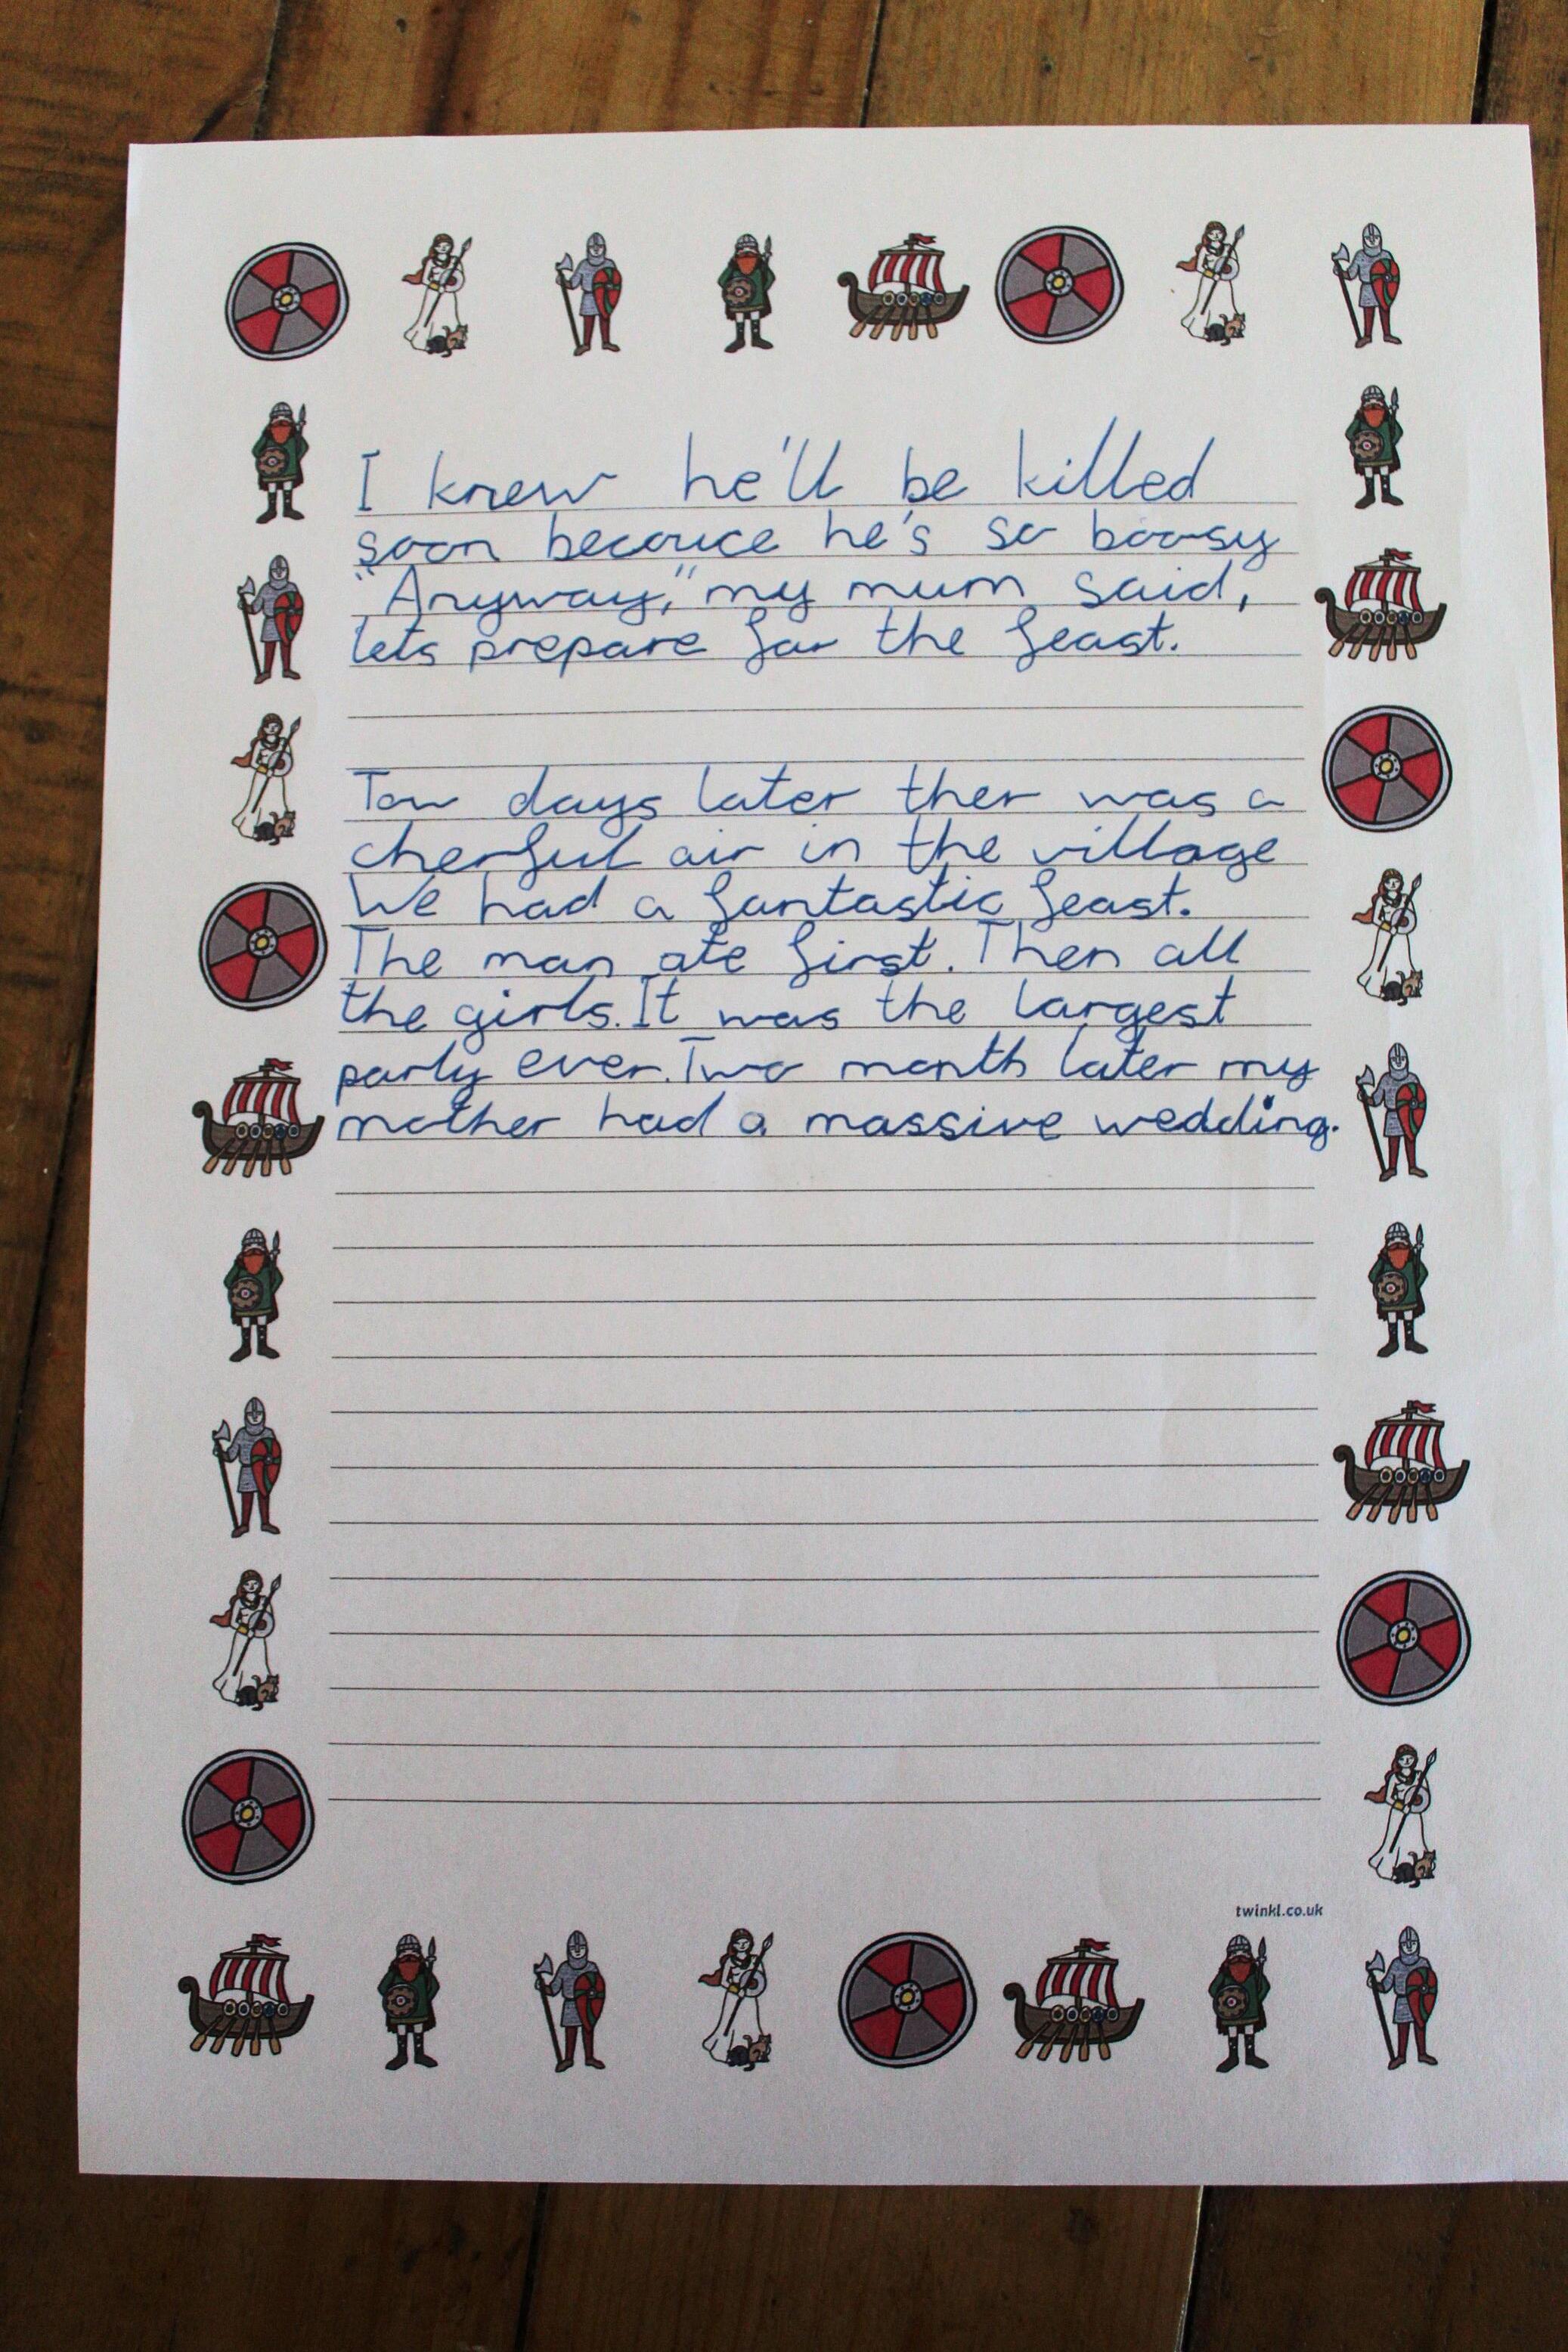 I knew he'll be killed
soon becouice he's so boosy
"Anyway," my mum said,
lets prepare for the feast.
Tow days later ther was a
cherful air in the village
We had a fantastic feast.
The man ate first. Then all
the girls. It was the largest
party ever. Two month later my
mother had a massive wedding.
twinkl.co.uk